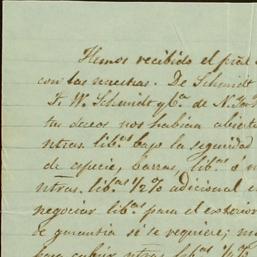 Hemos recibido el pral
con las nuestras. De Schmidt
F. W. Schmidt y Cª de N. York
tus deceos nos habian abierto
ntras. lib.ˢ bajo la seguridad
de especie, barras, lib.ˢ ó
ntras. lib.ᵃˢ ½% adicional
negociar lib.ˢ para el exterior
de garantia si se requiere;
para cubrir ntras lib.ᵃˢ ½%